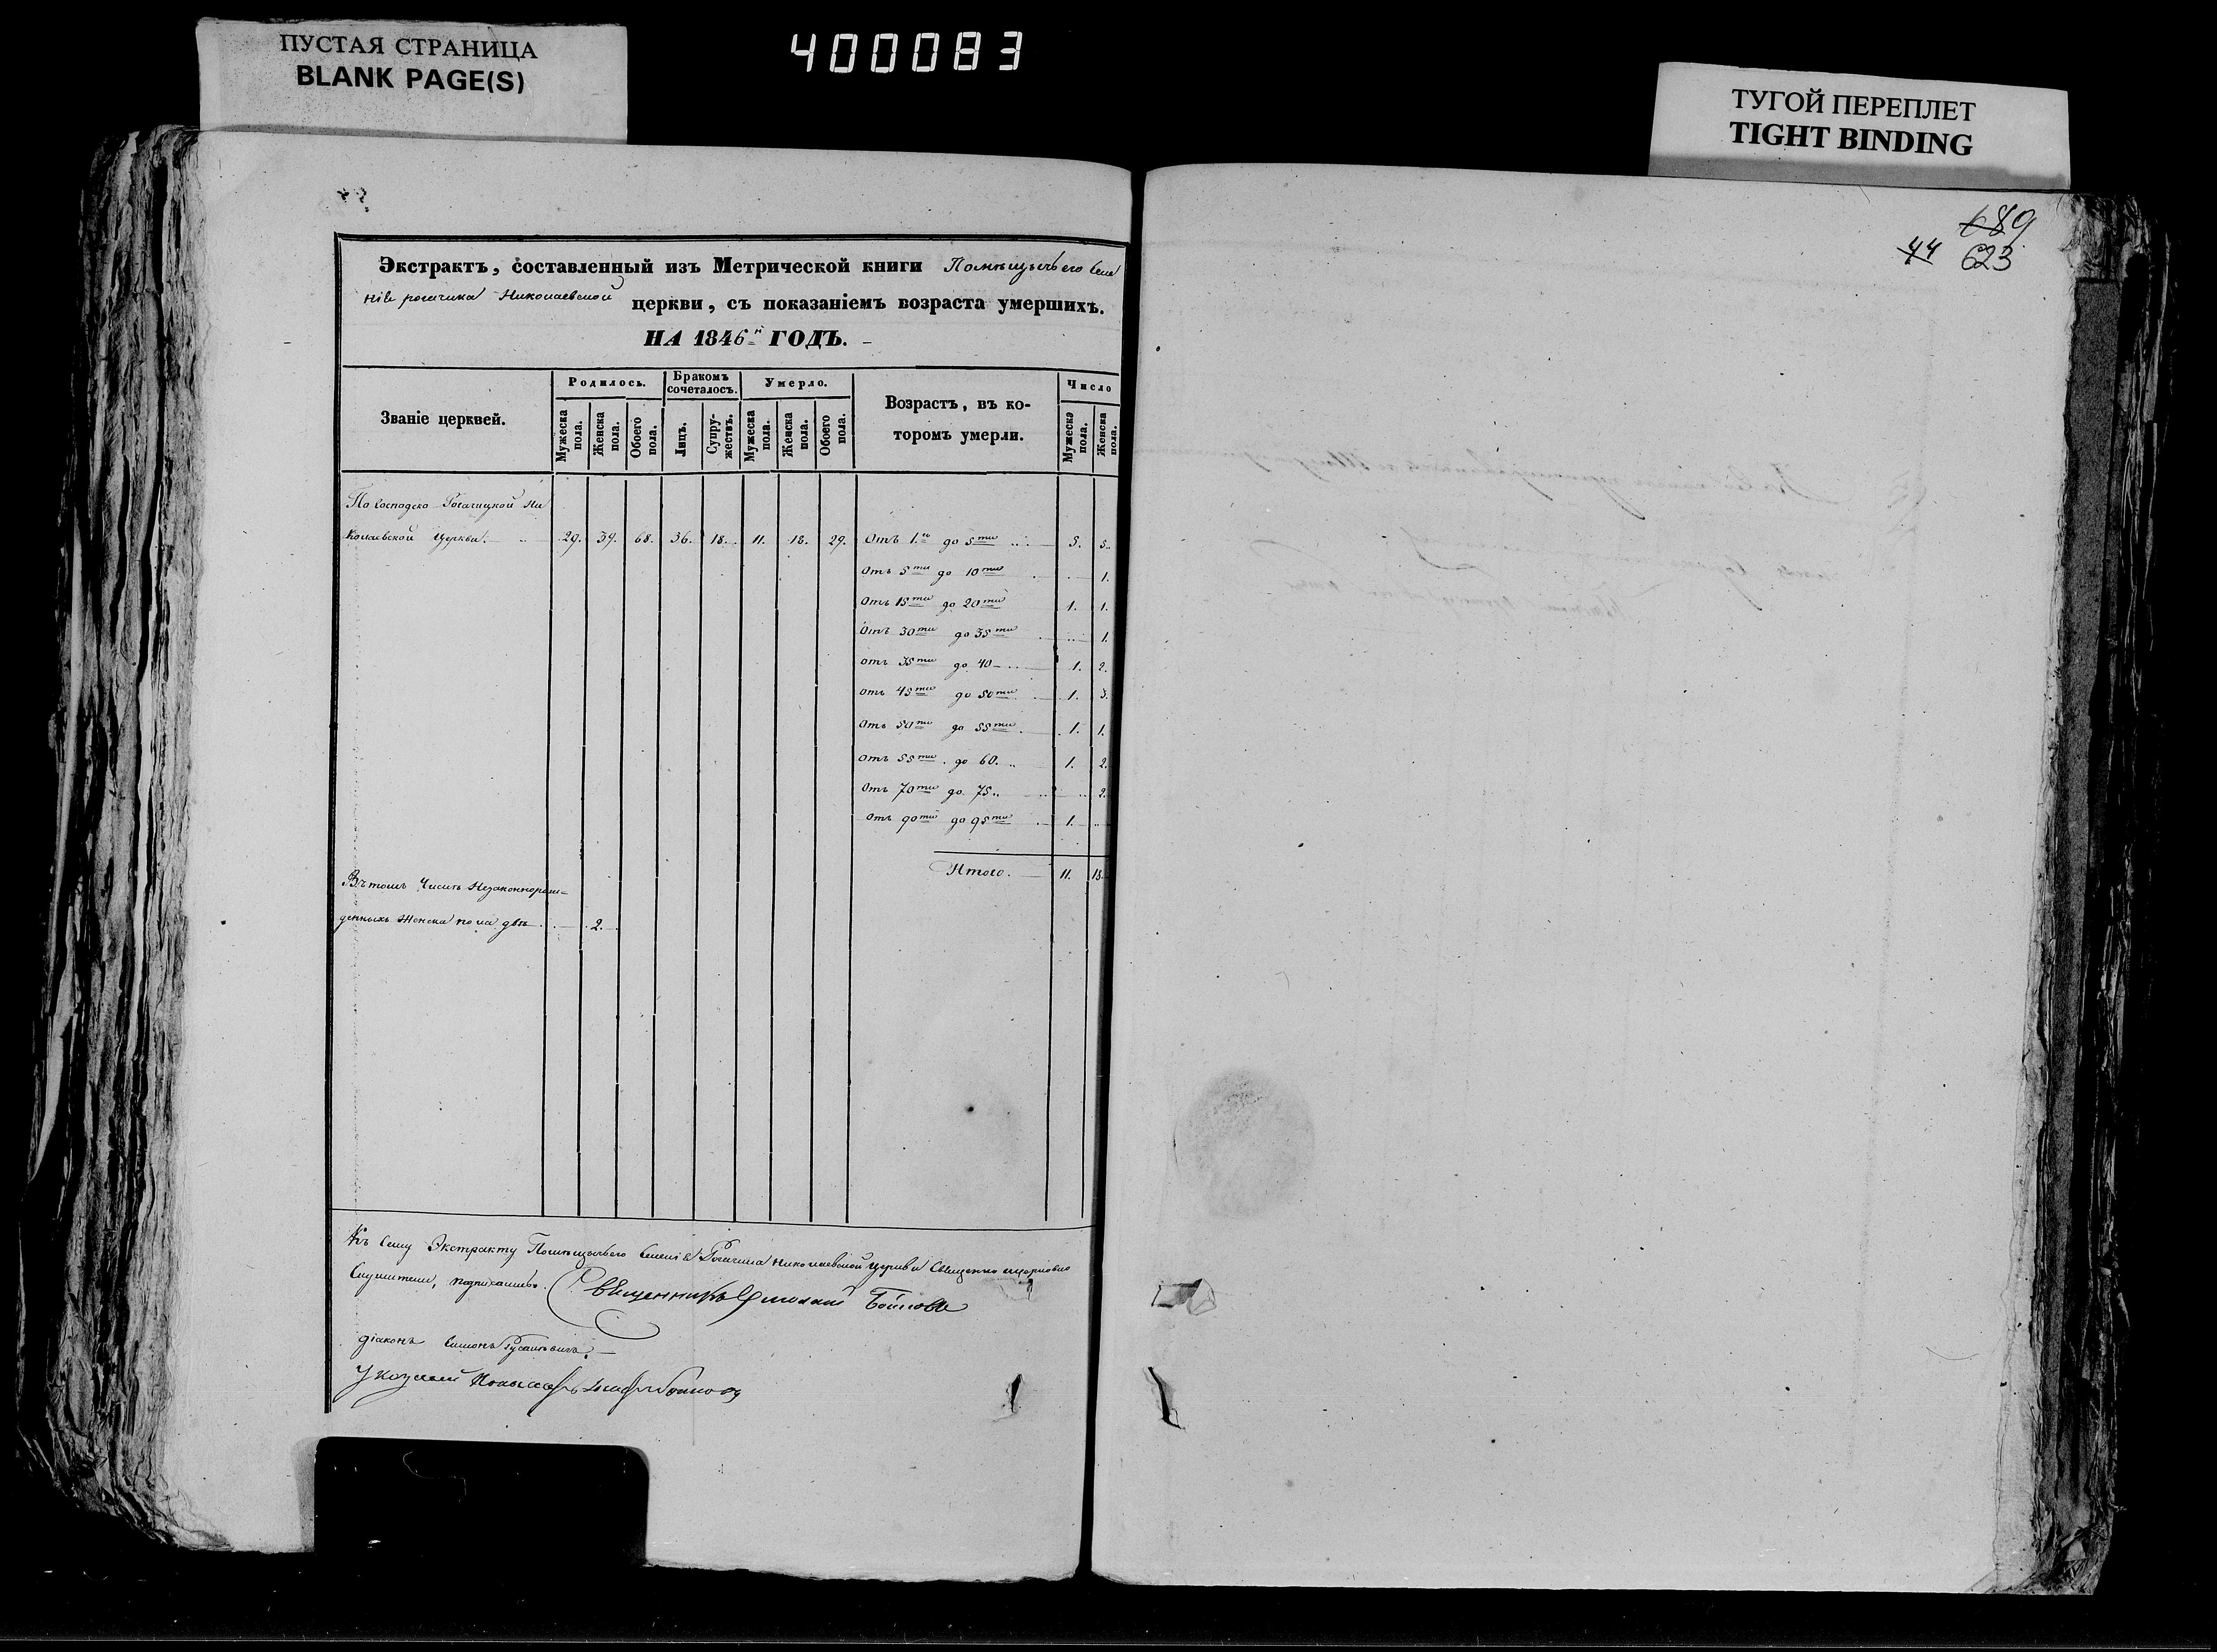 ПУСТАЯ СТРАНИЦА
BLANK PAGE(S)
400083
ТУГОЙ ПЕРЕПЛЕТ
TIGHT BINDING
689
44 623
Экстрактъ, составленный изъ Метрической книги Помѣщичьего Селе
нія рогачика Николаевской церкви, съ показаніемъ возраста умершихъ.
НА 1846й ГОДЪ.
Званіе церквей.
Родилось.
Мужеска пола.
Женска пола.
Обоего пола.
Бракомъ сочеталось.
Лицъ.
Супру-жествъ.
Умерло.
Мужеска пола.
Женска пола.
Обоего пола.
Возрастъ, въ ко-
торомъ умерли.
Число
Мужеска пола.
Женска пола.
По Господско Рогачицкой Ни
колаевской Церкви. 29. 39. 68. 36. 18. 11. 18. 29. Отъ 1.го до 5ти 5. 5.
Отъ 5ти до 10ти 1.
Отъ 15ти до 20ти 1. 1.
Отъ 30ти до 35ти 1.
отъ 35ти до 40 1. 2.
отъ 45ти до 50ти 1. 3.
Отъ 50ти до 55ти 1. 1.
отъ 55ти до 60. 1. 2.
Отъ 70ти до 75 2.
Отъ 90ти до 95ти 1.
Итого. 11. 18.
Въ томъ Числѣ Незаконнорож-
денныхъ Женска пола двѣ 2.
Къ Сему Экстракту Помѣщичьего Селенія Рогачика Николаевской Церкви Священно церковно
Служители, подписались. Священникъ Бойков
діаконъ Симонъ
Указный Пономарь